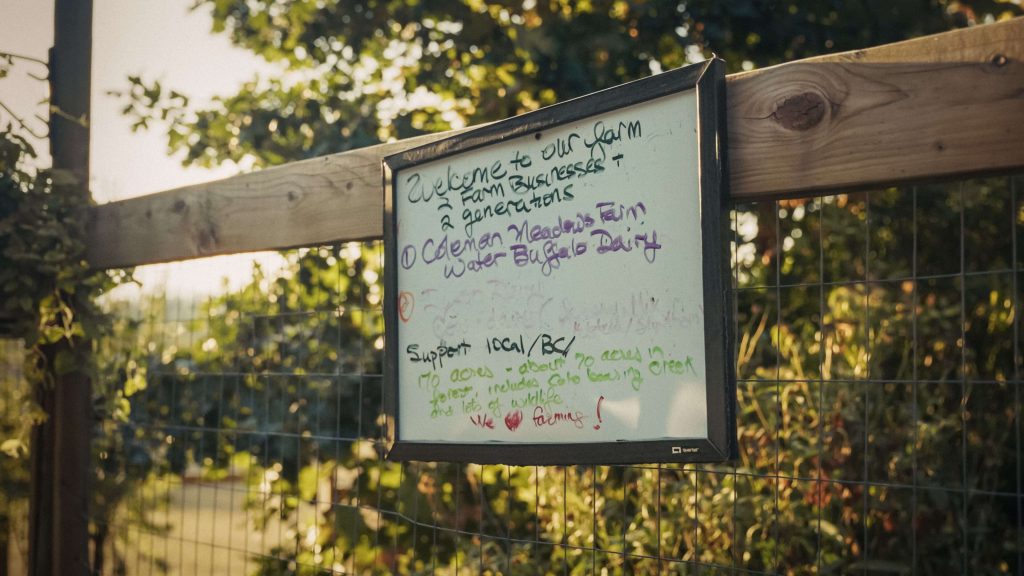 Welcome to our farm
2 Farm Businesses -
2 generations
① Coleman Meadows Farm
Water Buffalo Dairy
②
Support local/BC/
170 acres - about 70 acres in
forest, includes Coho bearing Creek
and lots of wildlife
We ♥ farming!